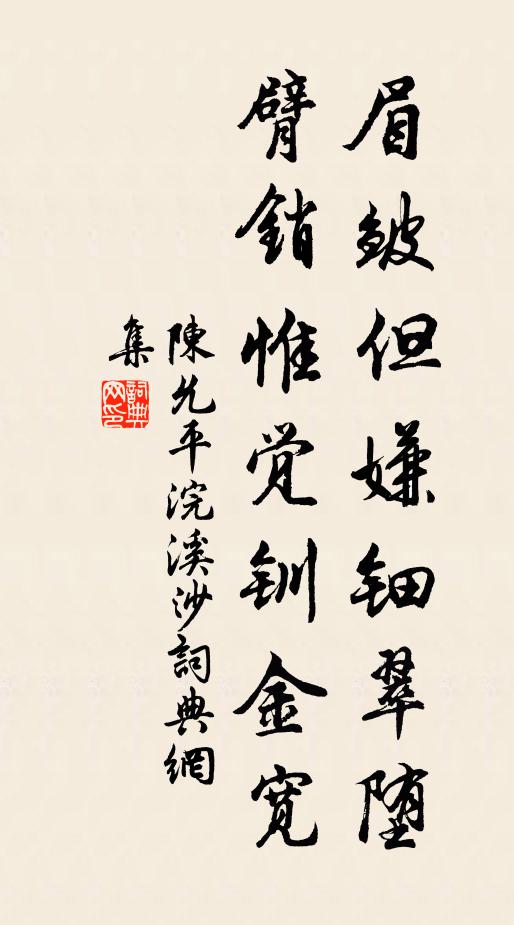 眉皱但嫌钿翠堕
臂銷惟觉钏金寛
陳允平浣溪沙詞典網
集
詞典网印